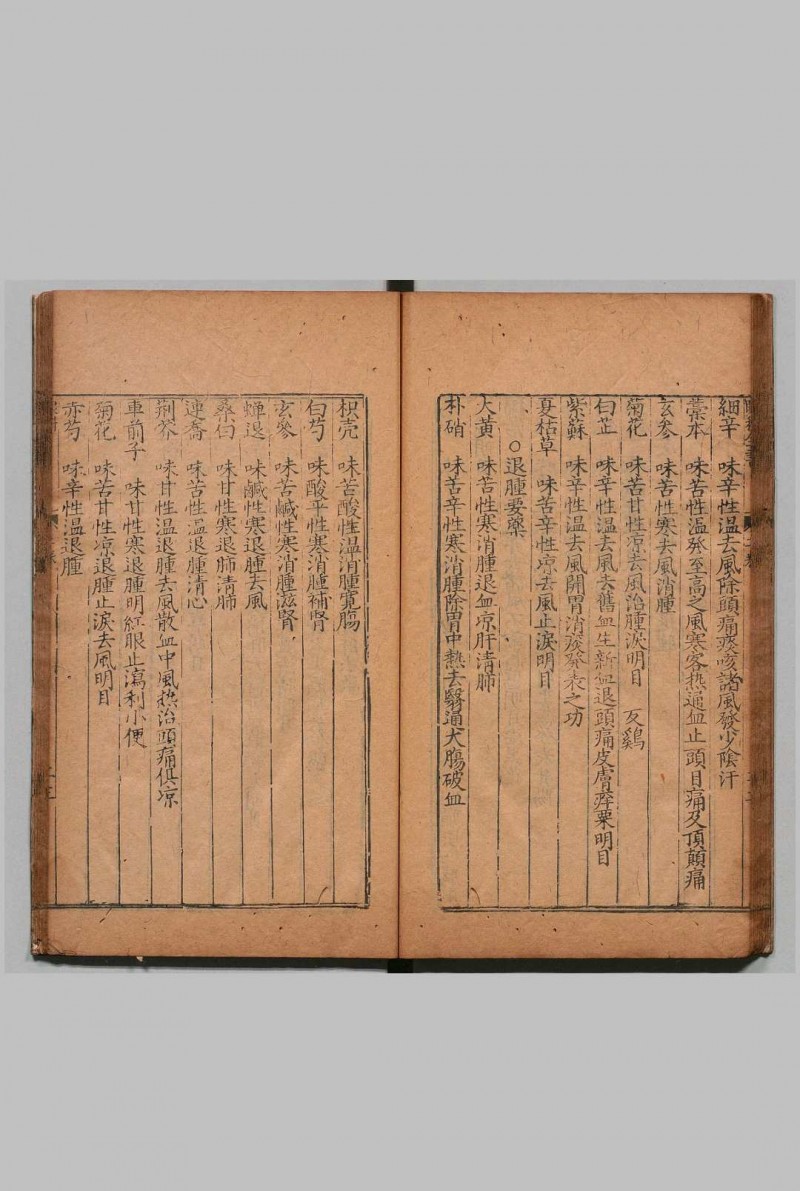 細辛 味辛性温去風除頭痛痰咳諸風發少陰汗
藁本 味苦性温發至高之風寒客热逼血止頭目痛及頂顛痛
玄参 味苦性寒去風消腫
菊花 味苦甘性凉去風治腫淚明目 忌鷄
白芷 味辛性温去風去舊血生新血退頭痛皮膚痒栗明目
紫蘇 味辛性温去風開胃消痰發表之功
夏枯草 味苦辛性凉去風止淚明目
○退腫要藥
大黄 味苦性寒消腫退血凉肝清肺
朴硝 味苦辛性寒消腫除胃中热去翳通大腸破血
枳壳 味苦酸性温消腫寬腸
白芍 味酸平性寒消腫補腎
玄參 味苦鹹性寒消腫滋腎
蟬退 味鹹性寒退腫去風
桑白 味甘性寒退肺清肺
連喬 味苦性温退腫清心
荆芥 味甘性温退腫去風散血中風热治頭痛俱凉
車前子 味甘性寒退腫明紅眼止瀉利小便
菊花 味苦甘性凉退腫止淚去風明目
赤芍 味辛性温退腫